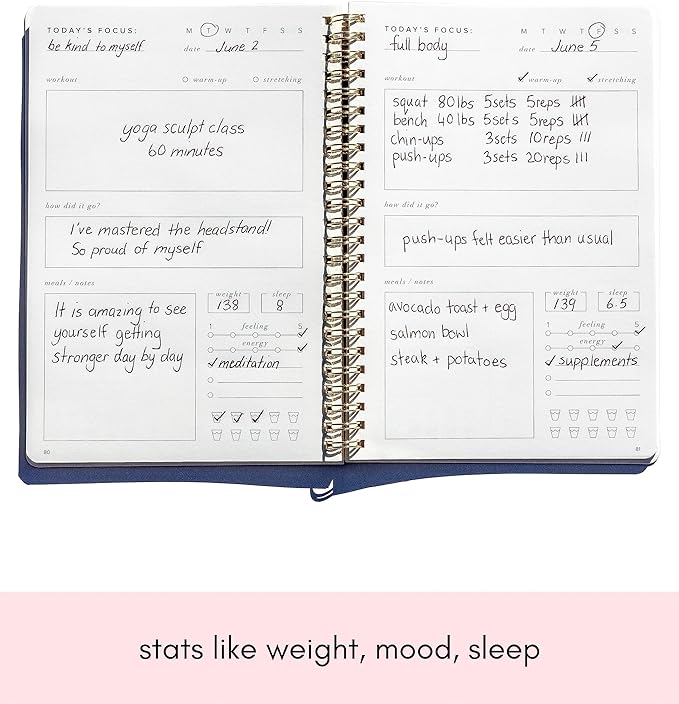 TODAY'S FOCUS: M T W T F S S
be kind to myself date June 2
workout warm-up stretching
yoga sculpt class
60 minutes
how did it go?
I've mastered the headstand!
So proud of myself
meals / notes
It is amazing to see
yourself getting
stronger day by day
weight sleep
138 8
1 feeling 5
energy
meditation
80
TODAY'S FOCUS: M T W T F S S
full body date June 5
workout warm-up stretching
squat 80lbs 5sets 5reps
bench 40lbs 5sets 5reps
chin-ups 3sets 10reps III
push-ups 3sets 20reps III
how did it go?
push-ups felt easier than usual
meals / notes
avocado toast + egg
salmon bowl
steak + potatoes
weight sleep
139 6.5
1 feeling 5
energy
supplements
81
stats like weight, mood, sleep